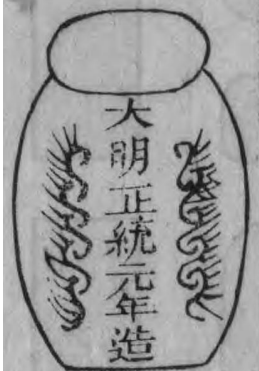 大明正統元年造